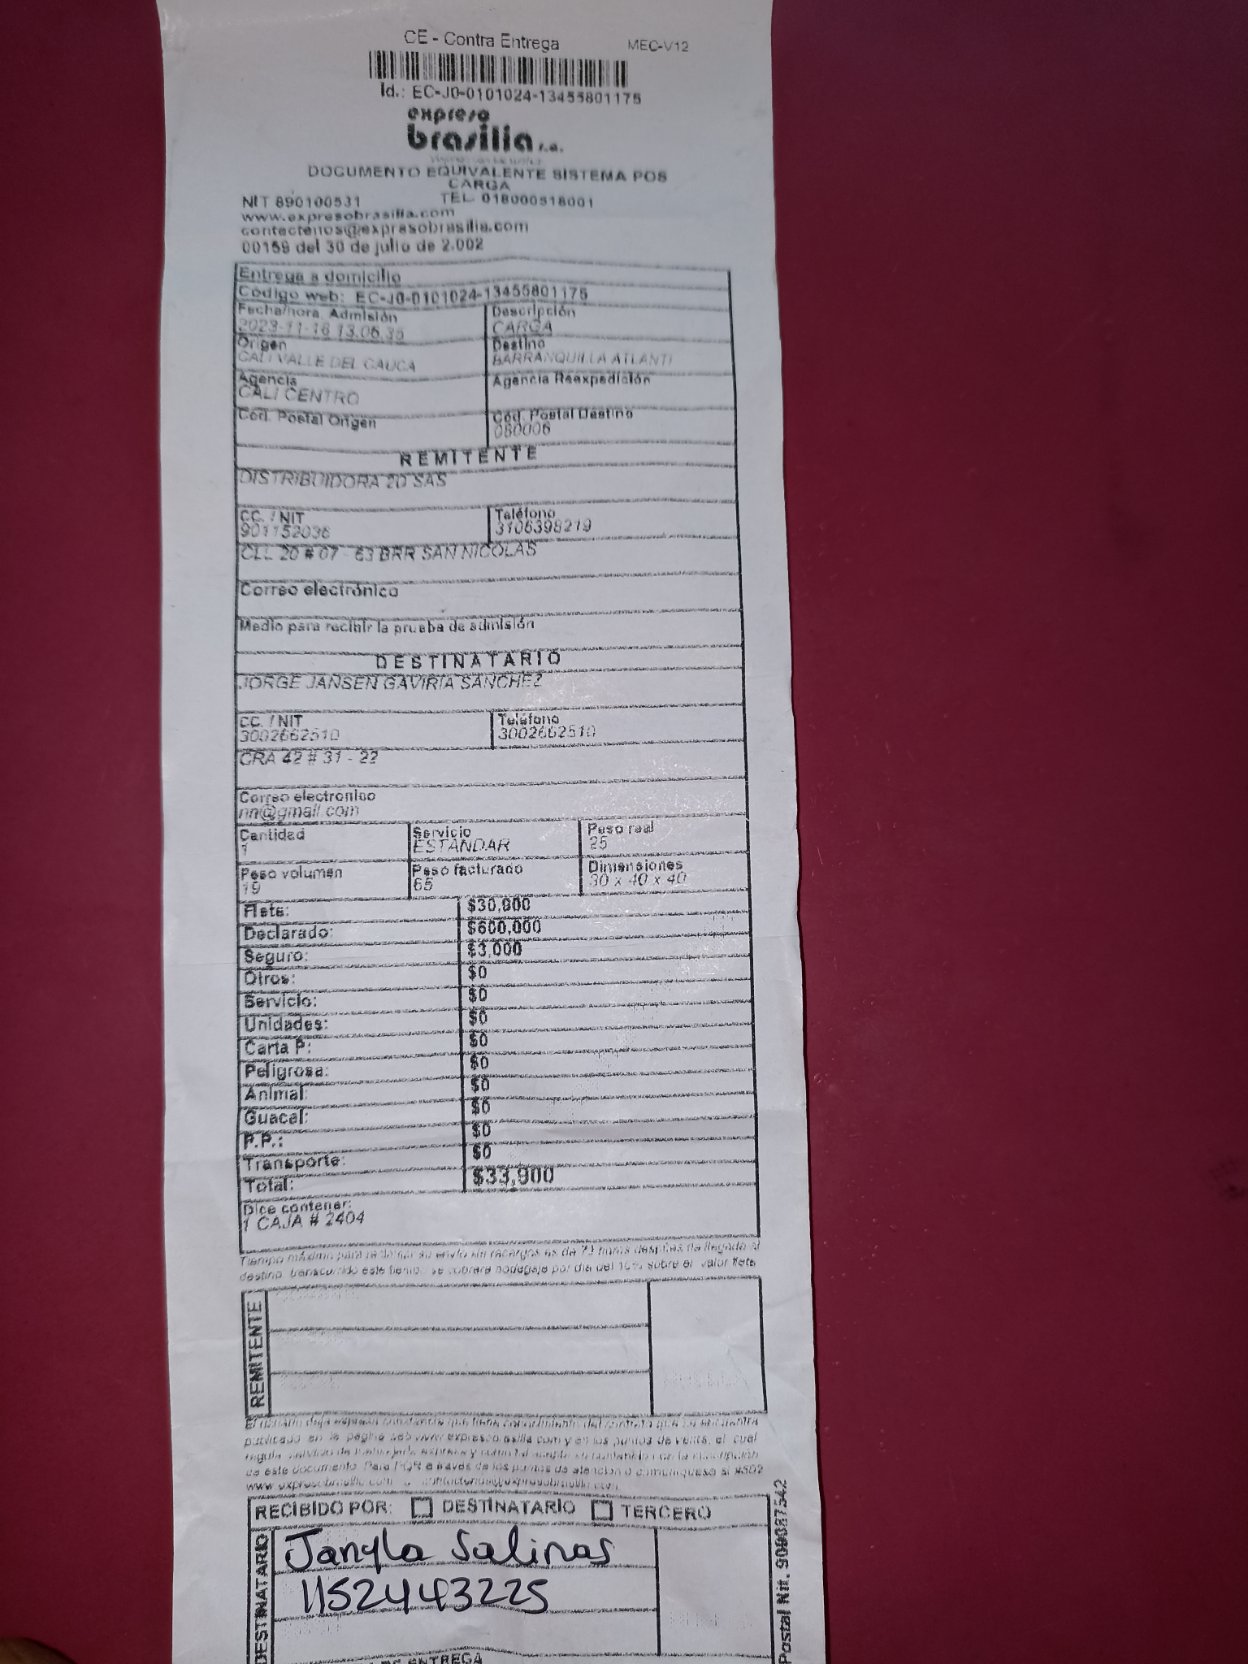 CE - Contra Entrega MEC-V12
Id.: EC-J0-0101024-13455801175
expreso
brasilia s.a.
DOCUMENTO EQUIVALENTE SISTEMA POS
CARGA
NIT 890100531 TEL. 018000518001
www.expresobrasilia.com
contactenos@expresobrasilia.com
00159 del 30 de julio de 2.002
Entrega a domicilio
Código web: EC-J0-0101024-13455801175
Fecha/hora Admisión Descripción
2023-11-16 13.06.35 CARGA
Origen Destino
CALI VALLE DEL CAUCA BARRANQUILLA ATLANTI
Agencia Agencia Reexpedición
CALI CENTRO
Cód. Postal Origen Cód. Postal Destino
080006
REMITENTE
DISTRIBUIDORA 2D SAS
CC. / NIT Teléfono
901152036 3106398219
CLL 20 # 07 - 63 BRR SAN NICOLAS
Correo electrónico
Medio para recibir la prueba de admisión
DESTINATARIO
JORGE JANSEN GAVIRIA SANCHEZ
CC. / NIT Teléfono
3002662510 3002662510
CRA 42 # 31 - 22
Correo electronico
nn@gmail.com
Cantidad Servicio Peso real
1 ESTANDAR 25
Peso volumen Peso facturado Dimensiones
19 65 30 x 40 x 40
Flete: $30,900
Declarado: $600,000
Seguro: $3,000
Otros: $0
Servicio: $0
Unidades: $0
Carta P: $0
Peligrosa: $0
Animal: $0
Guacal: $0
P.P.: $0
Transporte: $0
Total: $33,900
Dice contener:
1 CAJA # 2404
Tiempo máximo para reclamar su envío sin recargos es de 72 horas después de llegado al
destino, transcurrido este tiempo se cobrará bodegaje por día del 10% sobre el valor flete
REMITENTE
publicado en la página web www.expresobrasilia.com y en los puntos de venta, el cual
de este documento. Para PQR a través de los puntos de atención o comuníquese al #502
www.expresobrasilia.com o contactenos@expresobrasilia.com
RECIBIDO POR: DESTINATARIO TERCERO
DESTINATARIO
Jangla Salinas
1152443225
DE ENTREGA
Postal Nit. 909087542